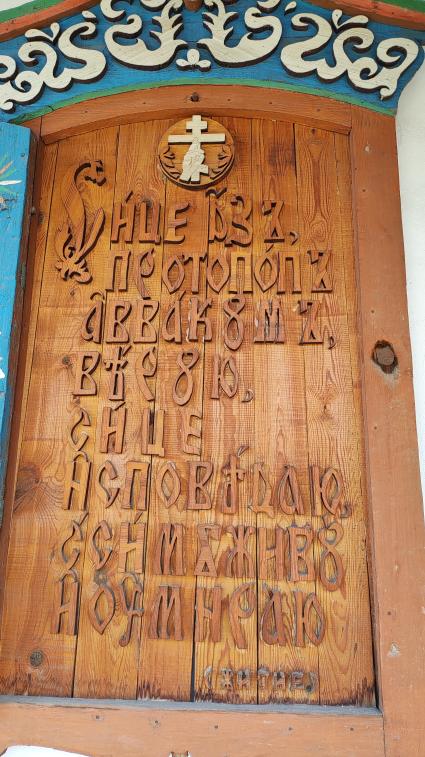 Си́це а҆́зъ,
протопо́пъ
а҆ввакꙋ́мъ,
вѣ́рꙋю,
си́це
и҆сповѣ́даю,
с си́м живꙋ
и оумираю
(житие)